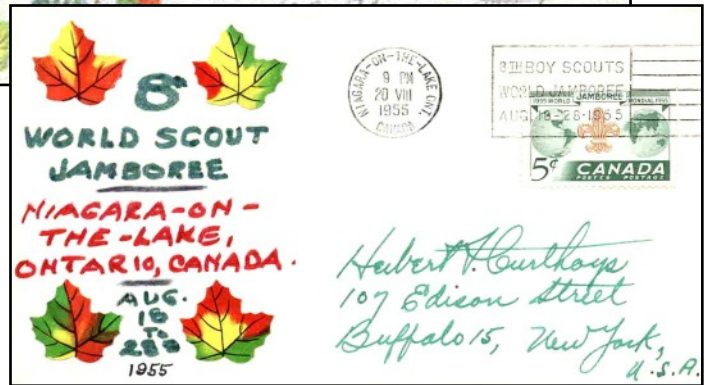 8th
WORLD SCOUT
JAMBOREE
NIAGARA-ON-
THE-LAKE,
ONTARIO, CANADA.
AUG.
18
TO
28th
1955
NIAGARA-ON-THE-LAKE ONT.
9 PM
20 VIII
1955
CANADA
8TH BOY SCOUTS
WORLD JAMBOREE
AUG. 18-28-1955
1955 WORLD JAMBOREE MONDIAL 1955
5¢ CANADA
POSTES POSTAGE
Herbert
107 Edison Street
Buffalo 15, New York,
U.S.A.